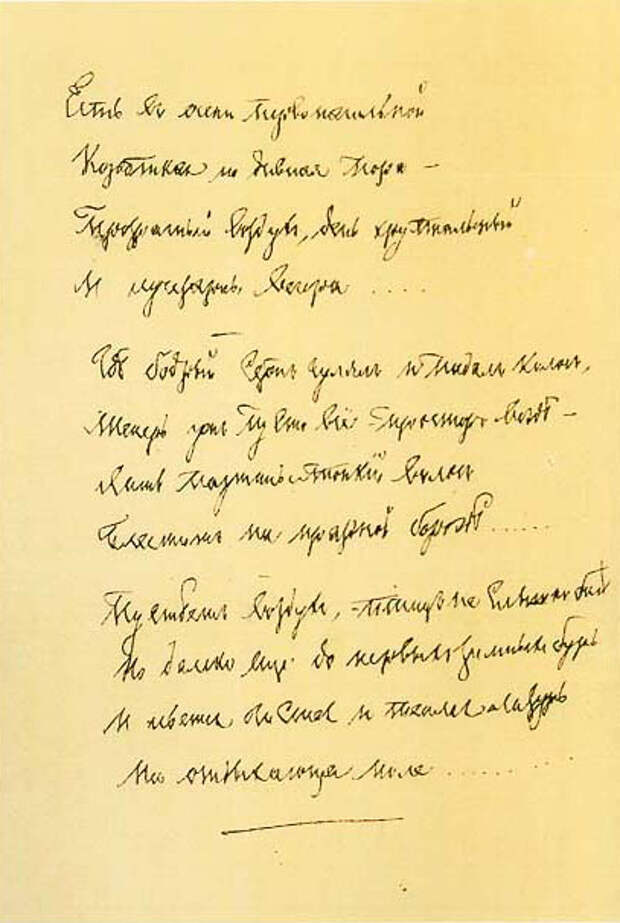 Есть въ осени первоначальной
Короткая но дивная пора —
Прозрачный воздухъ, день хрустальный
И лучезарны вечера ....
Гдѣ бодрый серпъ гулялъ и падалъ колосъ,
Теперь ужъ пусто всё – просторъ вездѣ –
Лишь паутины тонкій волосъ
Блеститъ на праздной бороздѣ ......
Пустѣетъ воздухъ, птицъ не слышно болѣ
Но далеко еще до первыхъ зимнихъ бурь
И льется чистая и теплая лазурь
На отдыхающее поле ........